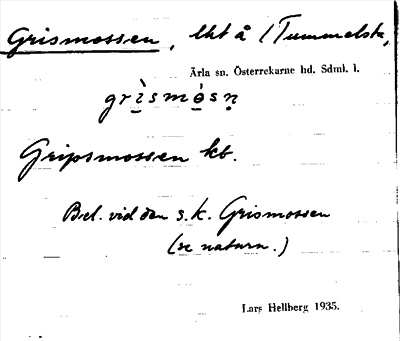 Grismossen, lht å /Tummelsta,
Ärla sn. Österrekarne hd. Sdml. l.
grìsmó̱sn̥
Gripsmossen kb.
Bel. vid den s.k. Grismossen
(se naturn.)
Lars Hellberg 1935.